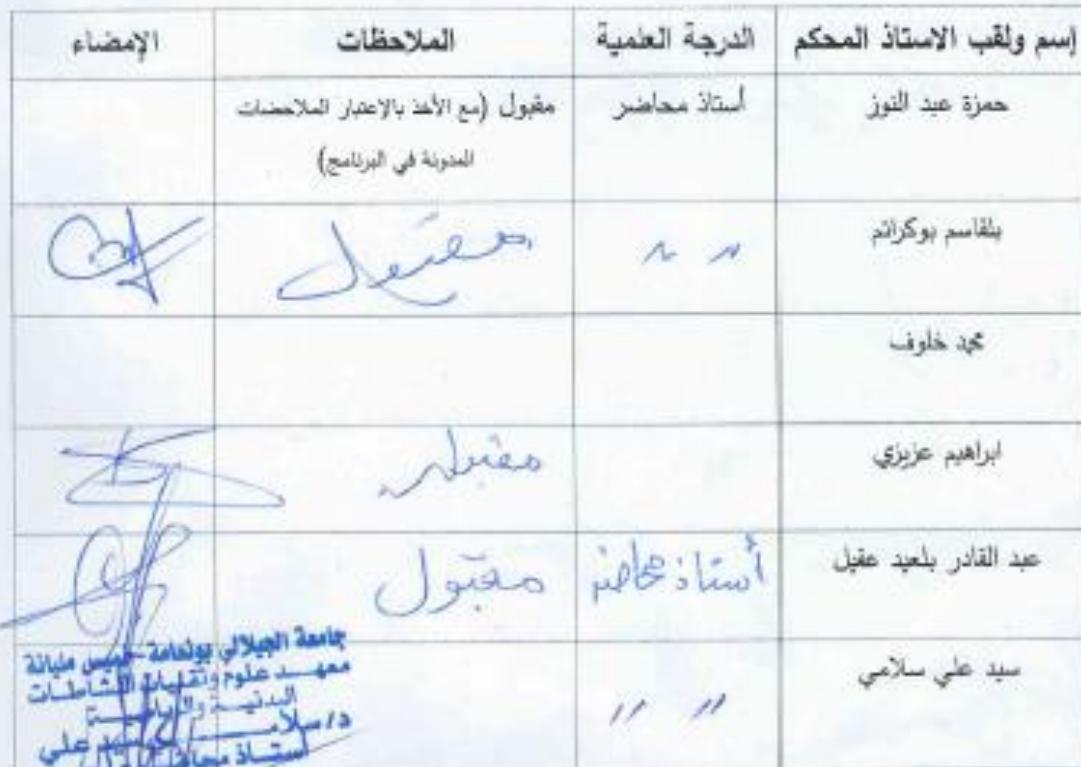 إسم ولقب الاستاذ المحكم الدرجة العلمية الملاحظات الإمضاء
حمزة عبد النوز أستاذ محاضر مقبول (مع الأخذ بالإعتبار الملاحضات
المدونة في البرنامج)
بلقاسم بوكراتم 〃 〃 مقبول
محمد خلوف
ابراهيم عزيزي مقبول
عبد القادر بلعيد عقيل أستاذ محاضر مقبول
سيد علي سلامي 〃 〃
جامعة الجيلالي بونعامة خميس مليانة
معهد علوم وتقنيات النشاطات
البدنية والرياضية
د/سلامي سيد علي
أستاذ محاضر